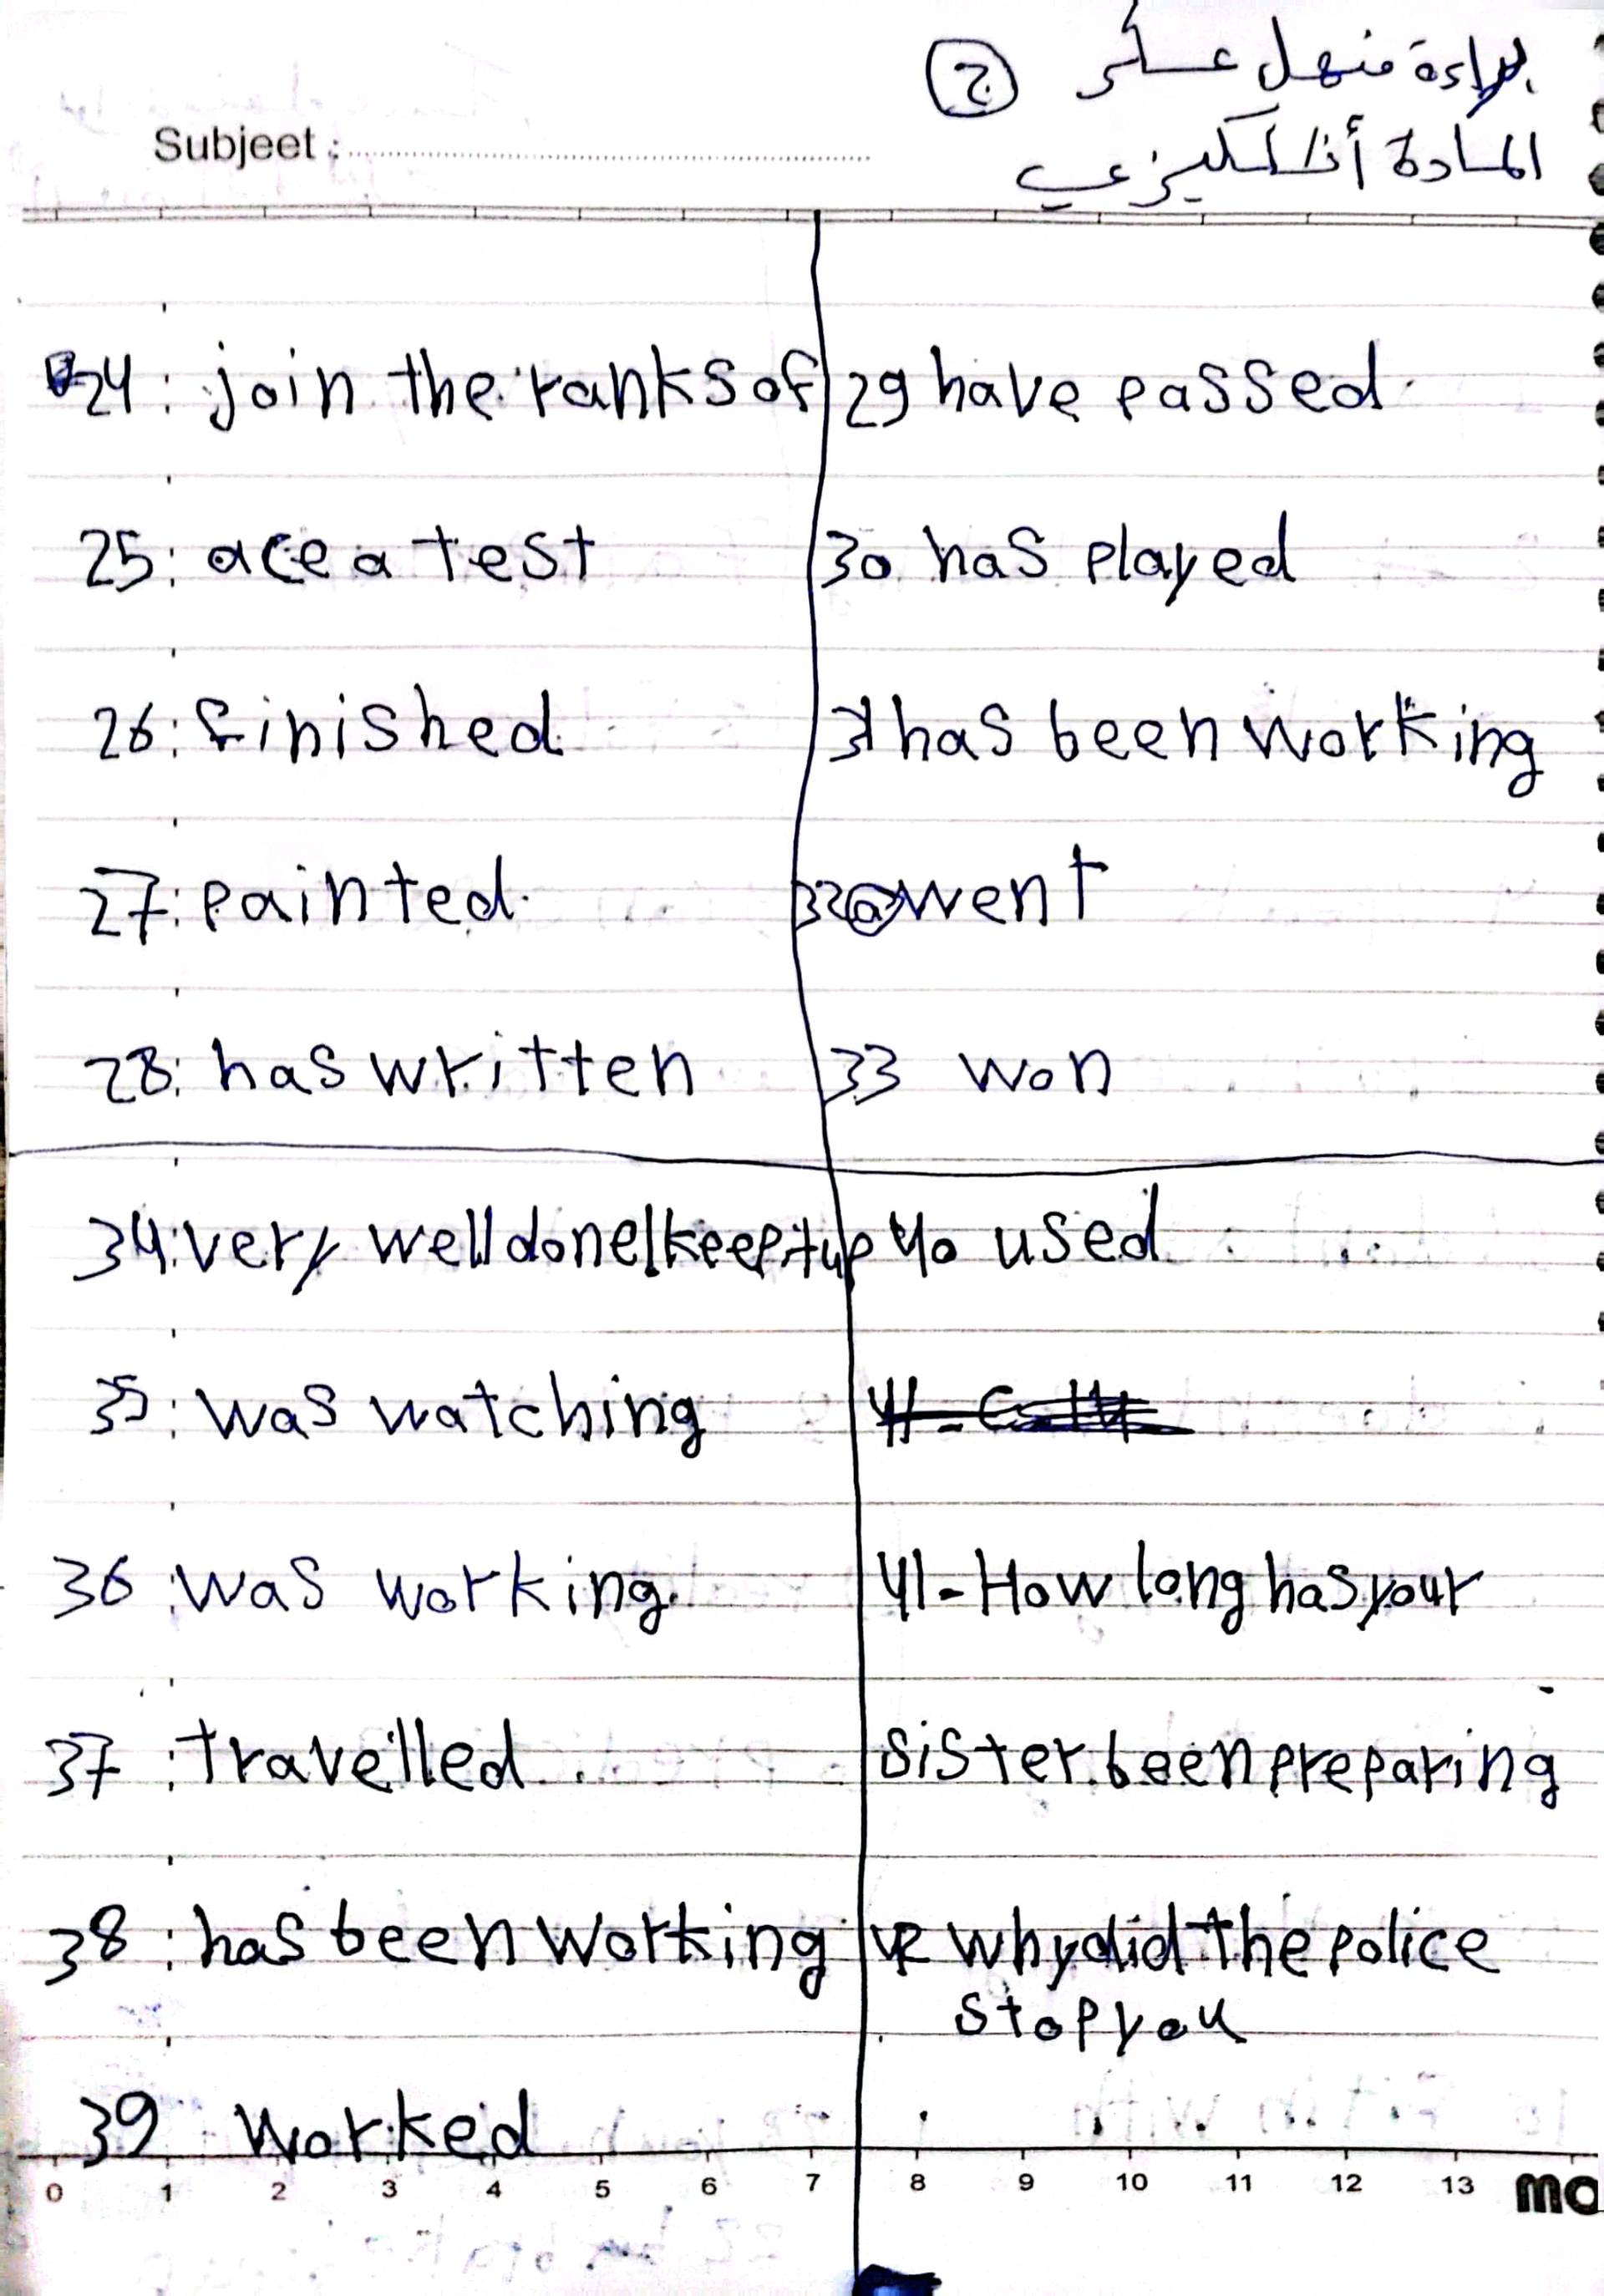 براءة منهل عسكر ج
المادة أنكليزي
Subjeet :
24: join the ranks of
25: ace a test
26: finished
27: painted
28: has written
29 have passed
30 has played
31 has been working
32 went
33 won
34: very well done! keep it up
35: was watching
36: was working
37: travelled
38: has been working
39 worked
40 used
41-
41- How long has your
sister been preparing
42 why did the police
stop you
0 1 2 3 4 5 6 7 8 9 10 11 12 13